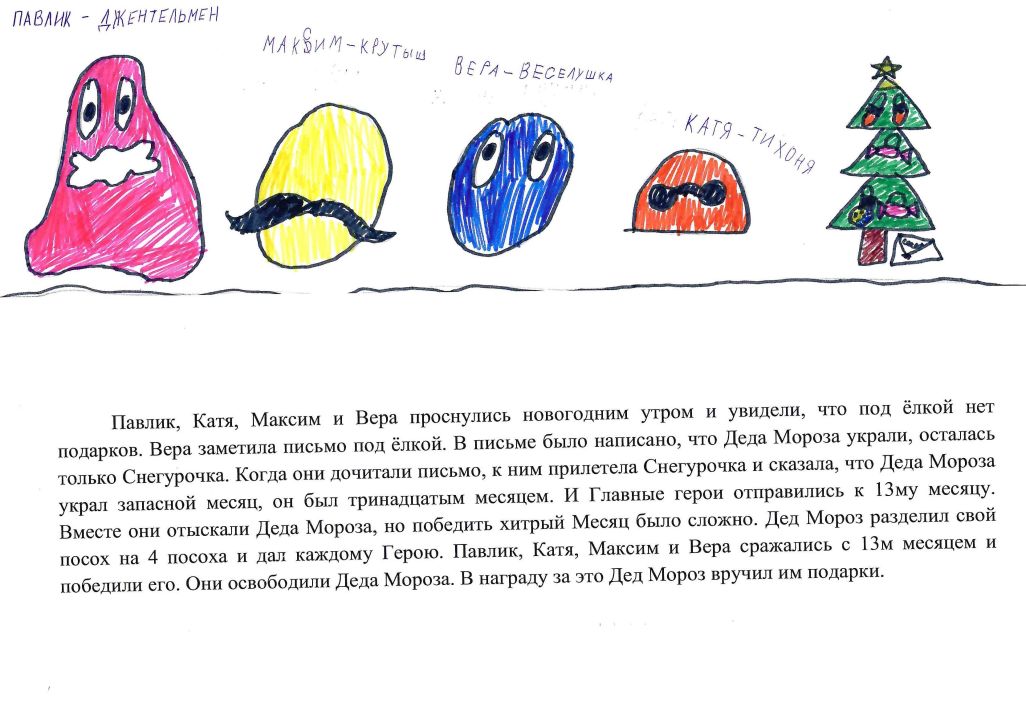 ПАВЛИК - ДЖЕНТЕЛЬМЕН
МАКСИМ - КРУТЫШ
ВЕРА - ВЕСЕЛУШКА
КАТЯ - ТИХОНЯ
Павлик, Катя, Максим и Вера проснулись новогодним утром и увидели, что под ёлкой нет
подарков. Вера заметила письмо под ёлкой. В письме было написано, что Деда Мороза украли, осталась
только Снегурочка. Когда они дочитали письмо, к ним прилетела Снегурочка и сказала, что Деда Мороза
украл запасной месяц, он был тринадцатым месяцем. И Главные герои отправились к 13му месяцу.
Вместе они отыскали Деда Мороза, но победить хитрый Месяц было сложно. Дед Мороз разделил свой
посох на 4 посоха и дал каждому Герою. Павлик, Катя, Максим и Вера сражались с 13м месяцем и
победили его. Они освободили Деда Мороза. В награду за это Дед Мороз вручил им подарки.